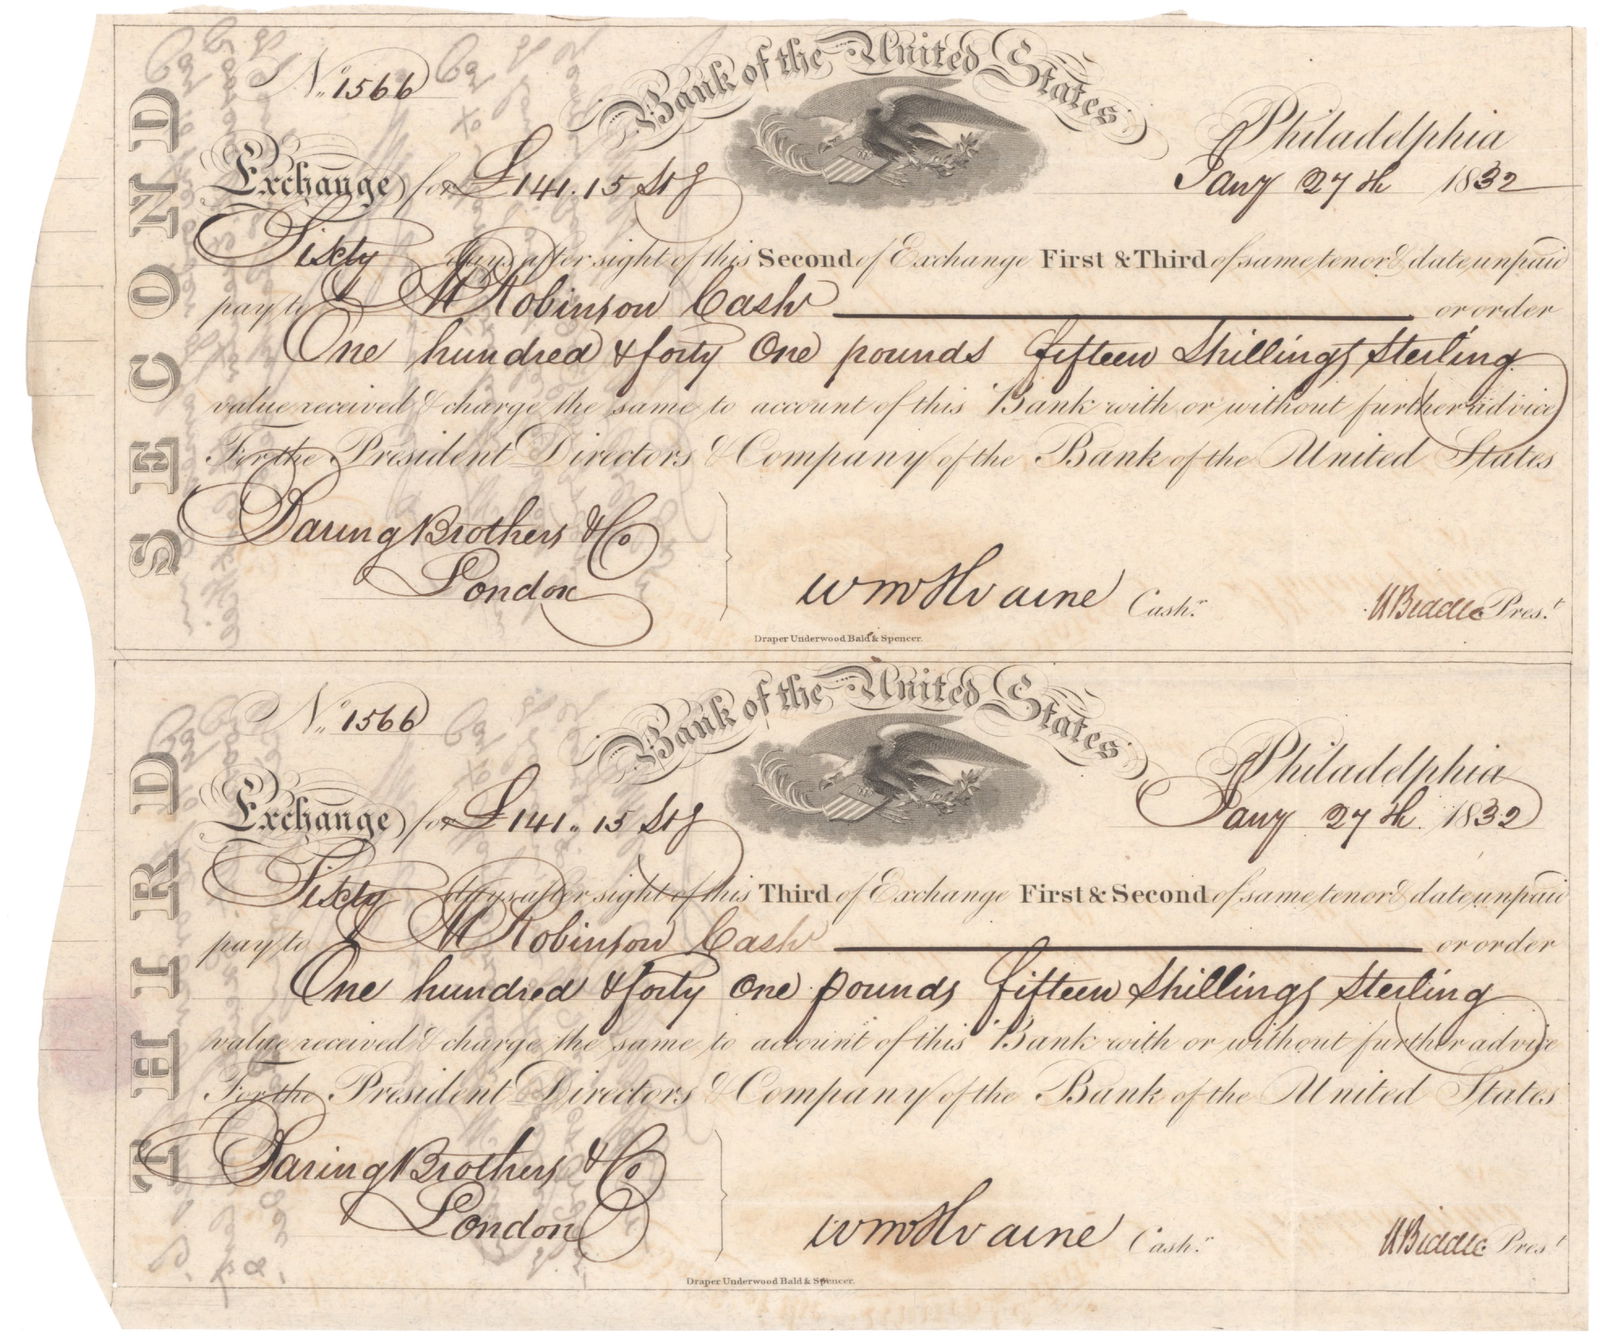 SECOND
No. 1566
Bank of the United States
Philadelphia
Exchange for £141.15 Stg
Jany 27th 1832
Sixty days after sight of this Second of Exchange First & Third of same tenor & date unpaid
pay to M Robinson Cashr or order
One hundred & forty One pounds fifteen Shillings Sterling
value received & charge the same to account of this Bank with or without further advice
For the President Directors & Company of the Bank of the United States
Baring Brothers & Co
London
Wm McIlvaine Cashr.
N Biddle Prest.
Draper Underwood Bald & Spencer.
THIRD
No. 1566
Bank of the United States
Philadelphia
Exchange for £141.. 15 Stg
Jany 27th 1832
Sixty days after sight of this Third of Exchange First & Second of same tenor & date unpaid
pay to M Robinson Cashr or order
One hundred & forty One pounds fifteen Shillings Sterling
value received & charge the same to account of this Bank with or without further advice
For the President Directors & Company of the Bank of the United States
Baring Brothers & Co
London
Wm McIlvaine Cashr.
N Biddle Prest.
Draper Underwood Bald & Spencer.